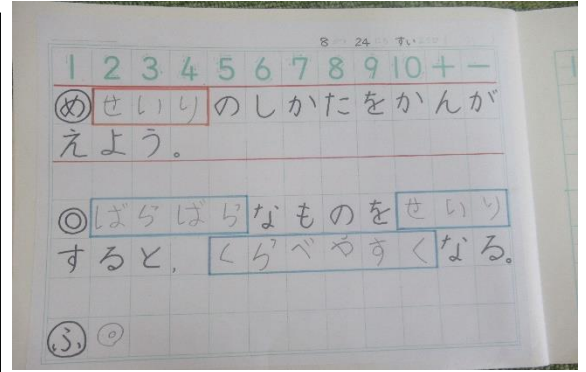 8 24 すい
1 2 3 4 5 6 7 8 9 10 + −
め せいりのしかたをかんが
えよう。
◎ ばらばらなものをせいり
すると、くらべやすくなる。
ふ ◎